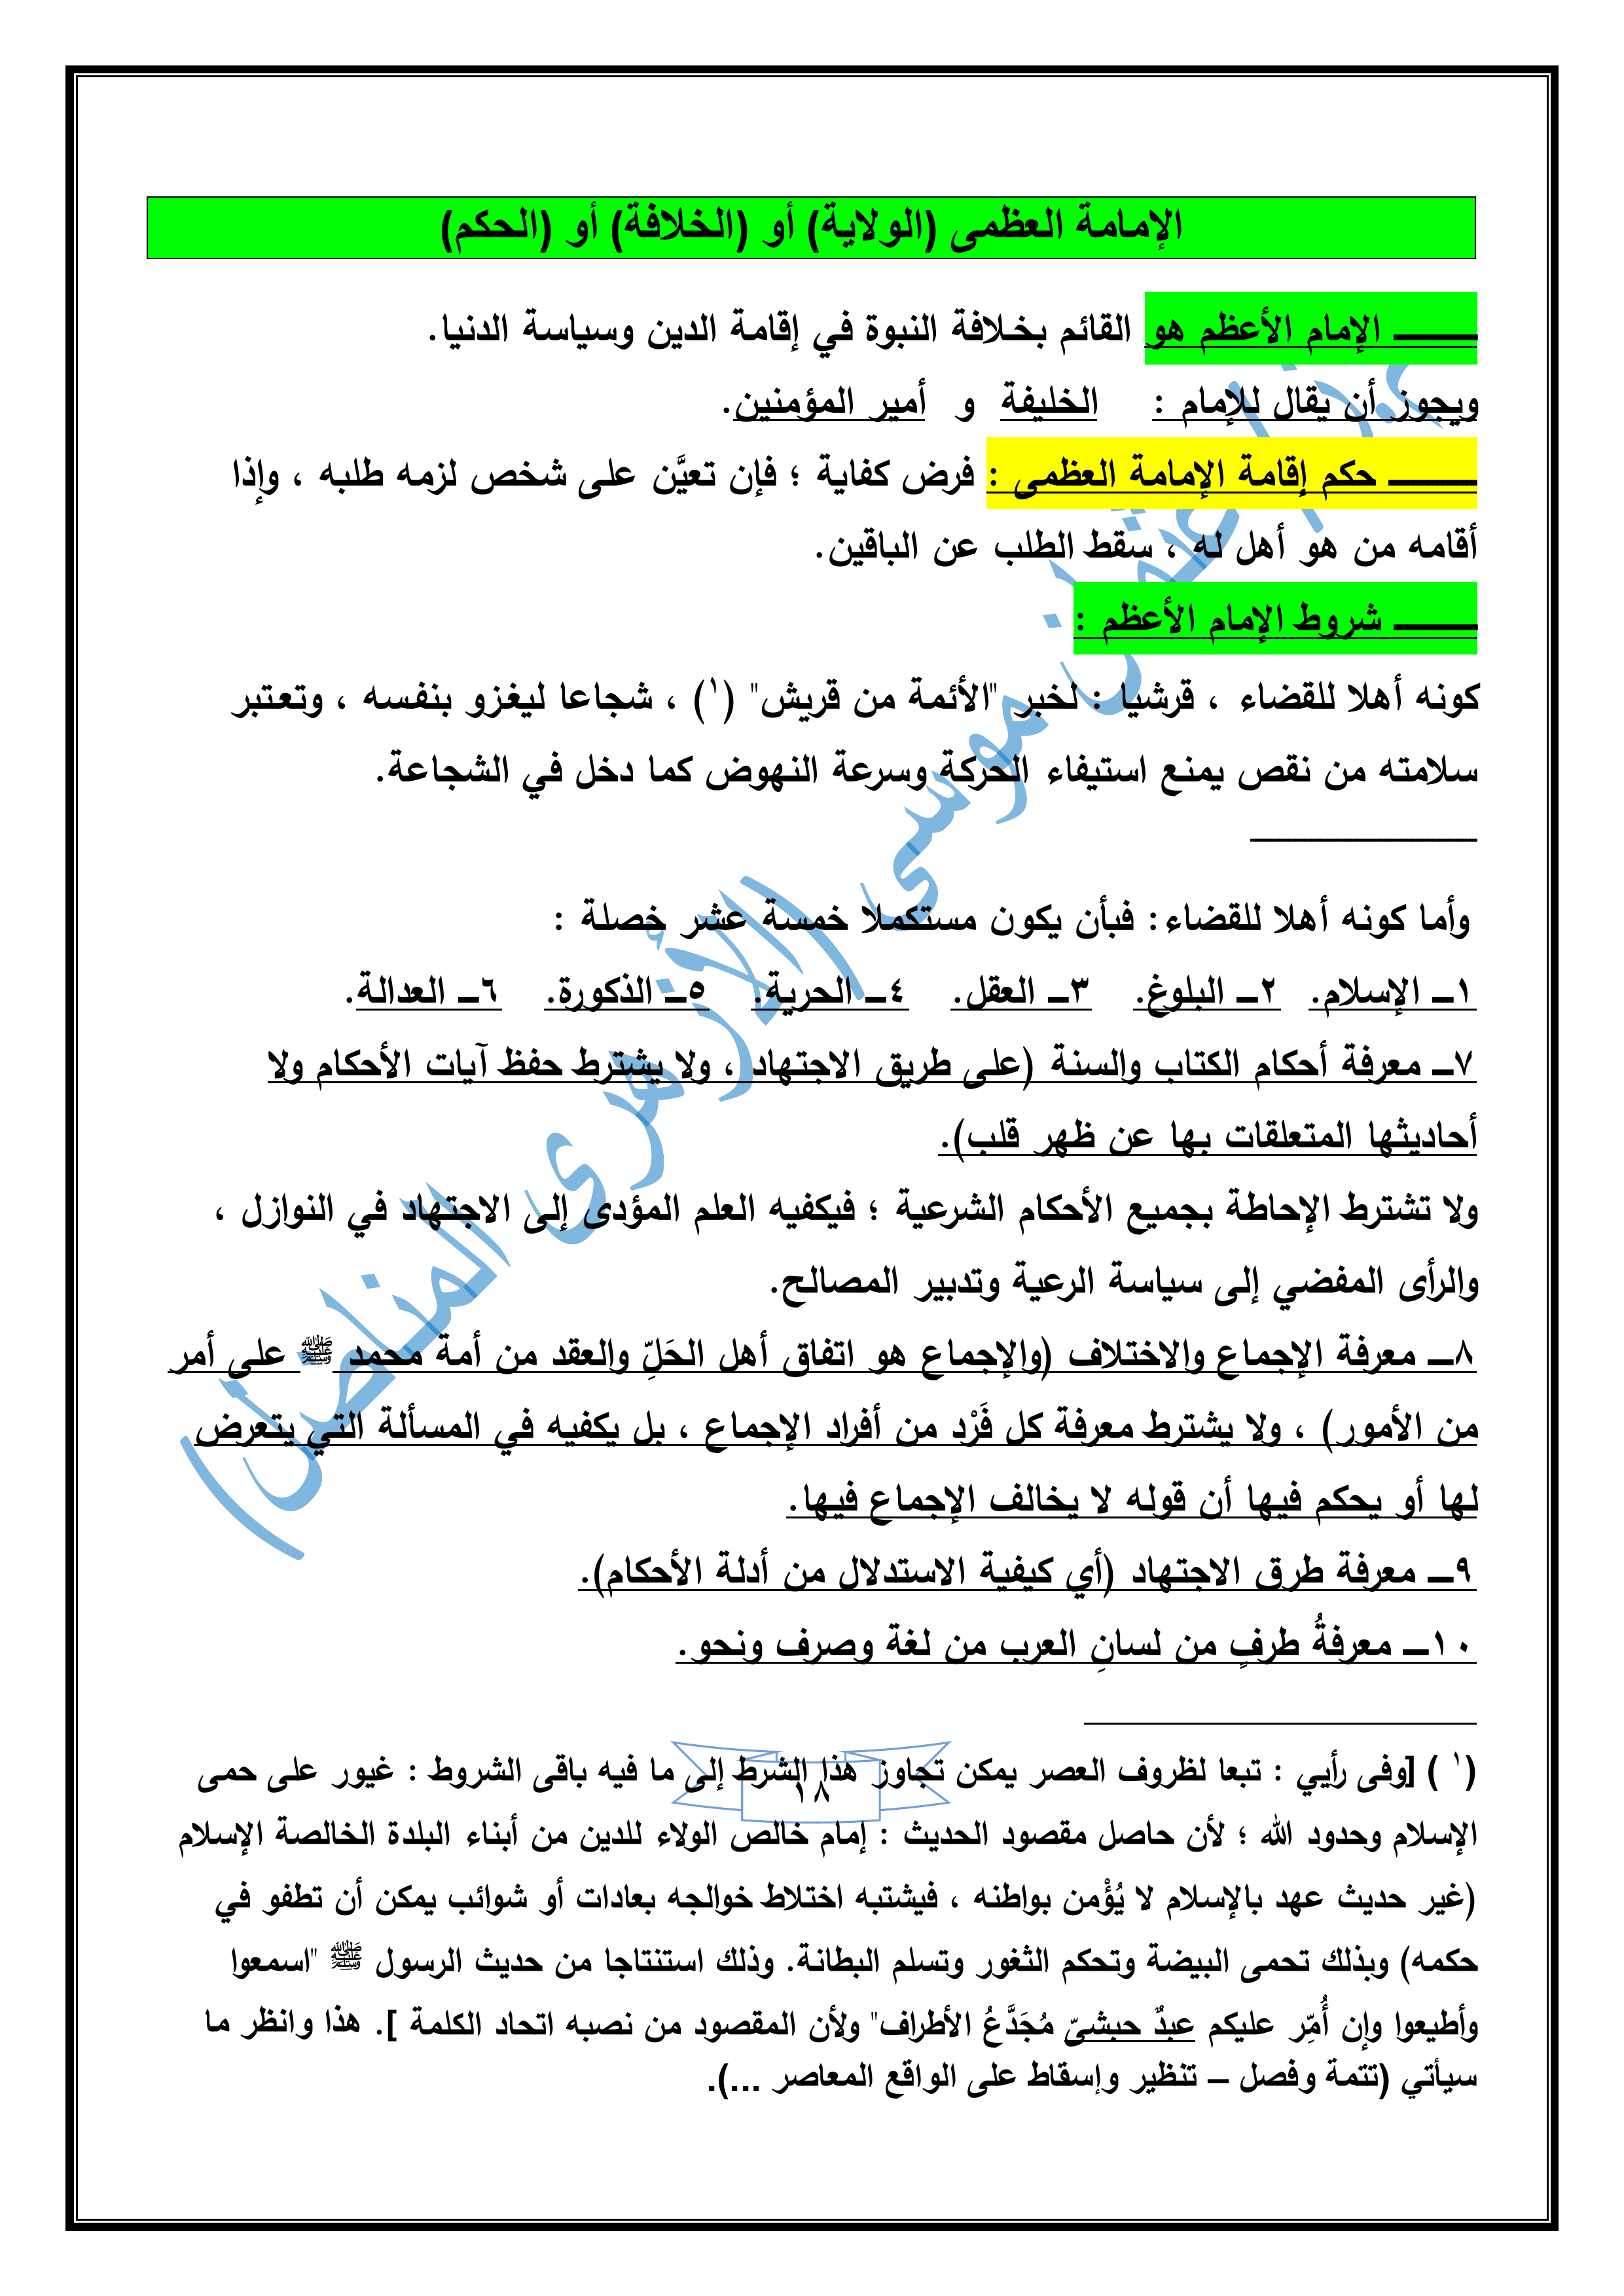 الإمامة العظمى (الولاية) أو (الخلافة) أو (الحكم)
ـــــــ الإمام الأعظم هو القائم بخلافة النبوة في إقامة الدين وسياسة الدنيا.
ويجوز أن يقال للإمام : الخليفة و أمير المؤمنين.
ـــــــ حكم إقامة الإمامة العظمى : فرض كفاية ؛ فإن تعيَّن على شخص لزمه طلبه ، وإذا
أقامه من هو أهل له ، سقط الطلب عن الباقين.
ـــــــ شروط الإمام الأعظم :
كونه أهلا للقضاء ، قرشيا : لخبر "الأئمة من قريش" (١) ، شجاعا ليغزو بنفسه ، وتعتبر
سلامته من نقص يمنع استيفاء الحركة وسرعة النهوض كما دخل في الشجاعة.
ـــــــــــــــــــــ
وأما كونه أهلا للقضاء: فبأن يكون مستكملا خمسة عشر خصلة :
١ــ الإسلام. ٢ــ البلوغ. ٣ــ العقل. ٤ــ الحرية. ٥ــ الذكورة. ٦ــ العدالة.
٧ــ معرفة أحكام الكتاب والسنة (على طريق الاجتهاد ، ولا يشترط حفظ آيات الأحكام ولا
أحاديثها المتعلقات بها عن ظهر قلب).
ولا تشترط الإحاطة بجميع الأحكام الشرعية ؛ فيكفيه العلم المؤدى إلى الاجتهاد في النوازل ،
والرأى المفضي إلى سياسة الرعية وتدبير المصالح.
٨ــ معرفة الإجماع والاختلاف (والإجماع هو اتفاق أهل الحَلِّ والعقد من أمة محمد ﷺ على أمر
من الأمور) ، ولا يشترط معرفة كل فَرْد من أفراد الإجماع ، بل يكفيه في المسألة التي يتعرض
لها أو يحكم فيها أن قوله لا يخالف الإجماع فيها.
٩ــ معرفة طرق الاجتهاد (أي كيفية الاستدلال من أدلة الأحكام).
١٠ــ معرفةُ طرفٍ من لسانِ العرب من لغة وصرف ونحو.
(١) [وفى رأيي : تبعا لظروف العصر يمكن تجاوز هذا الشرط إلى ما فيه باقى الشروط : غيور على حمى
١٨
الإسلام وحدود الله ؛ لأن حاصل مقصود الحديث : إمام خالص الولاء للدين من أبناء البلدة الخالصة الإسلام
(غير حديث عهد بالإسلام لا يُؤْمن بواطنه ، فيشتبه اختلاط خوالجه بعادات أو شوائب يمكن أن تطفو في
حكمه) وبذلك تحمى البيضة وتحكم الثغور وتسلم البطانة. وذلك استنتاجا من حديث الرسول ﷺ "اسمعوا
وأطيعوا وإن أُمِّر عليكم عبدٌ حبشىّ مُجَدَّعُ الأطراف" ولأن المقصود من نصبه اتحاد الكلمة ]. هذا وانظر ما
سيأتي (تتمة وفصل – تنظير وإسقاط على الواقع المعاصر ...).